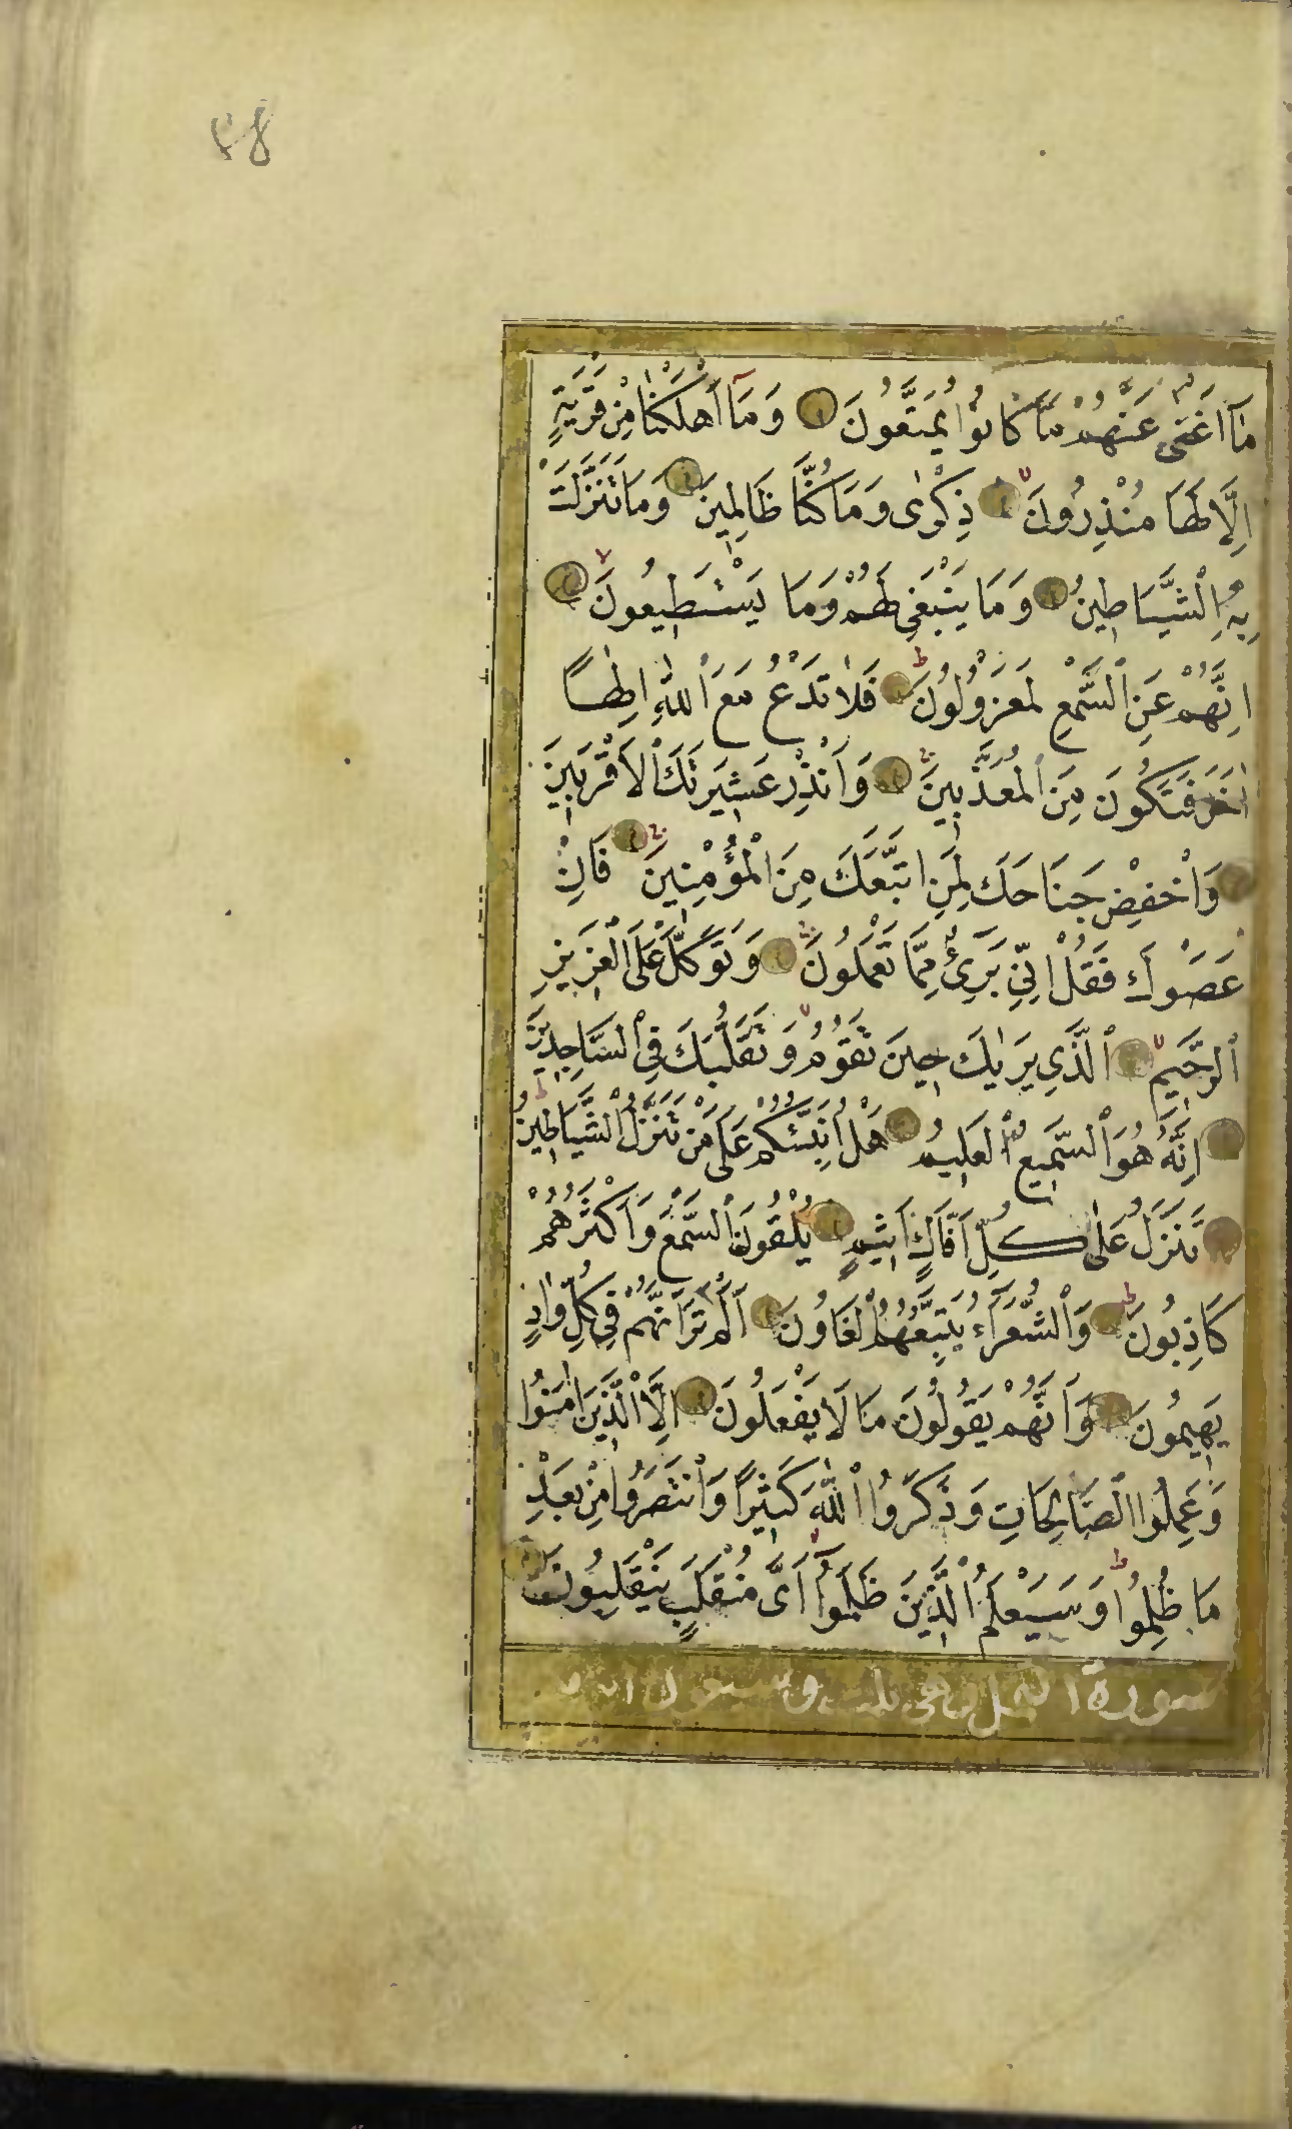 ٣٨
مَآ اَغْنٰى عَنْهُمْ مَّا كَانُوْا يُمَتَّعُونَ وَمَآ اَهْلَكْنَا مِنْ قَرْيَةٍ
اِلَّا لَهَا مُنْذِرُونَ ذِكْرٰى وَمَا كُنَّا ظَالِمِينَ وَمَا تَنَزَّلَتْ
بِهِ الشَّيَاطِينُ وَمَا يَنْبَغِي لَهُمْ وَمَا يَسْتَطِيعُونَ
اِنَّهُمْ عَنِ السَّمْعِ لَمَعْزُولُونَ فَلَا تَدْعُ مَعَ اللّٰهِ اِلٰهًا
اٰخَرَ فَتَكُونَ مِنَ الْمُعَذَّبِينَ وَاَنْذِرْ عَشِيرَتَكَ الْاَقْرَبِينَ
وَاخْفِضْ جَنَاحَكَ لِمَنِ اتَّبَعَكَ مِنَ الْمُؤْمِنِينَ فَاِنْ
عَصَوْكَ فَقُلْ اِنِّي بَرِيءٌ مِمَّا تَعْمَلُونَ وَتَوَكَّلْ عَلَى الْعَزِيزِ
الرَّحِيمِ الَّذِي يَرٰيكَ حِينَ تَقُومُ وَتَقَلُّبَكَ فِي السَّاجِدِينَ
اِنَّهُ هُوَ السَّمِيعُ الْعَلِيمُ هَلْ اُنَبِّئُكُمْ عَلٰى مَنْ تَنَزَّلُ الشَّيَاطِينُ
تَنَزَّلُ عَلٰى كُلِّ اَفَّاكٍ اَثِيمٍ يُلْقُونَ السَّمْعَ وَاَكْثَرُهُمْ
كَاذِبُونَ وَالشُّعَرَآءُ يَتَّبِعُهُمُ الْغَاوُنَ اَلَمْ تَرَ اَنَّهُمْ فِي كُلِّ وَادٍ
يَهِيمُونَ وَاَنَّهُمْ يَقُولُونَ مَا لَا يَفْعَلُونَ اِلَّا الَّذِينَ اٰمَنُوا
وَعَمِلُوا الصَّالِحَاتِ وَذَكَرُوا اللّٰهَ كَثِيرًا وَانْتَصَرُوا مِنْ بَعْدِ
مَا ظُلِمُوا وَسَيَعْلَمُ الَّذِينَ ظَلَمُوا اَىَّ مُنْقَلَبٍ يَنْقَلِبُونَ
سورة النمل وهي ثلث وتسعون اية